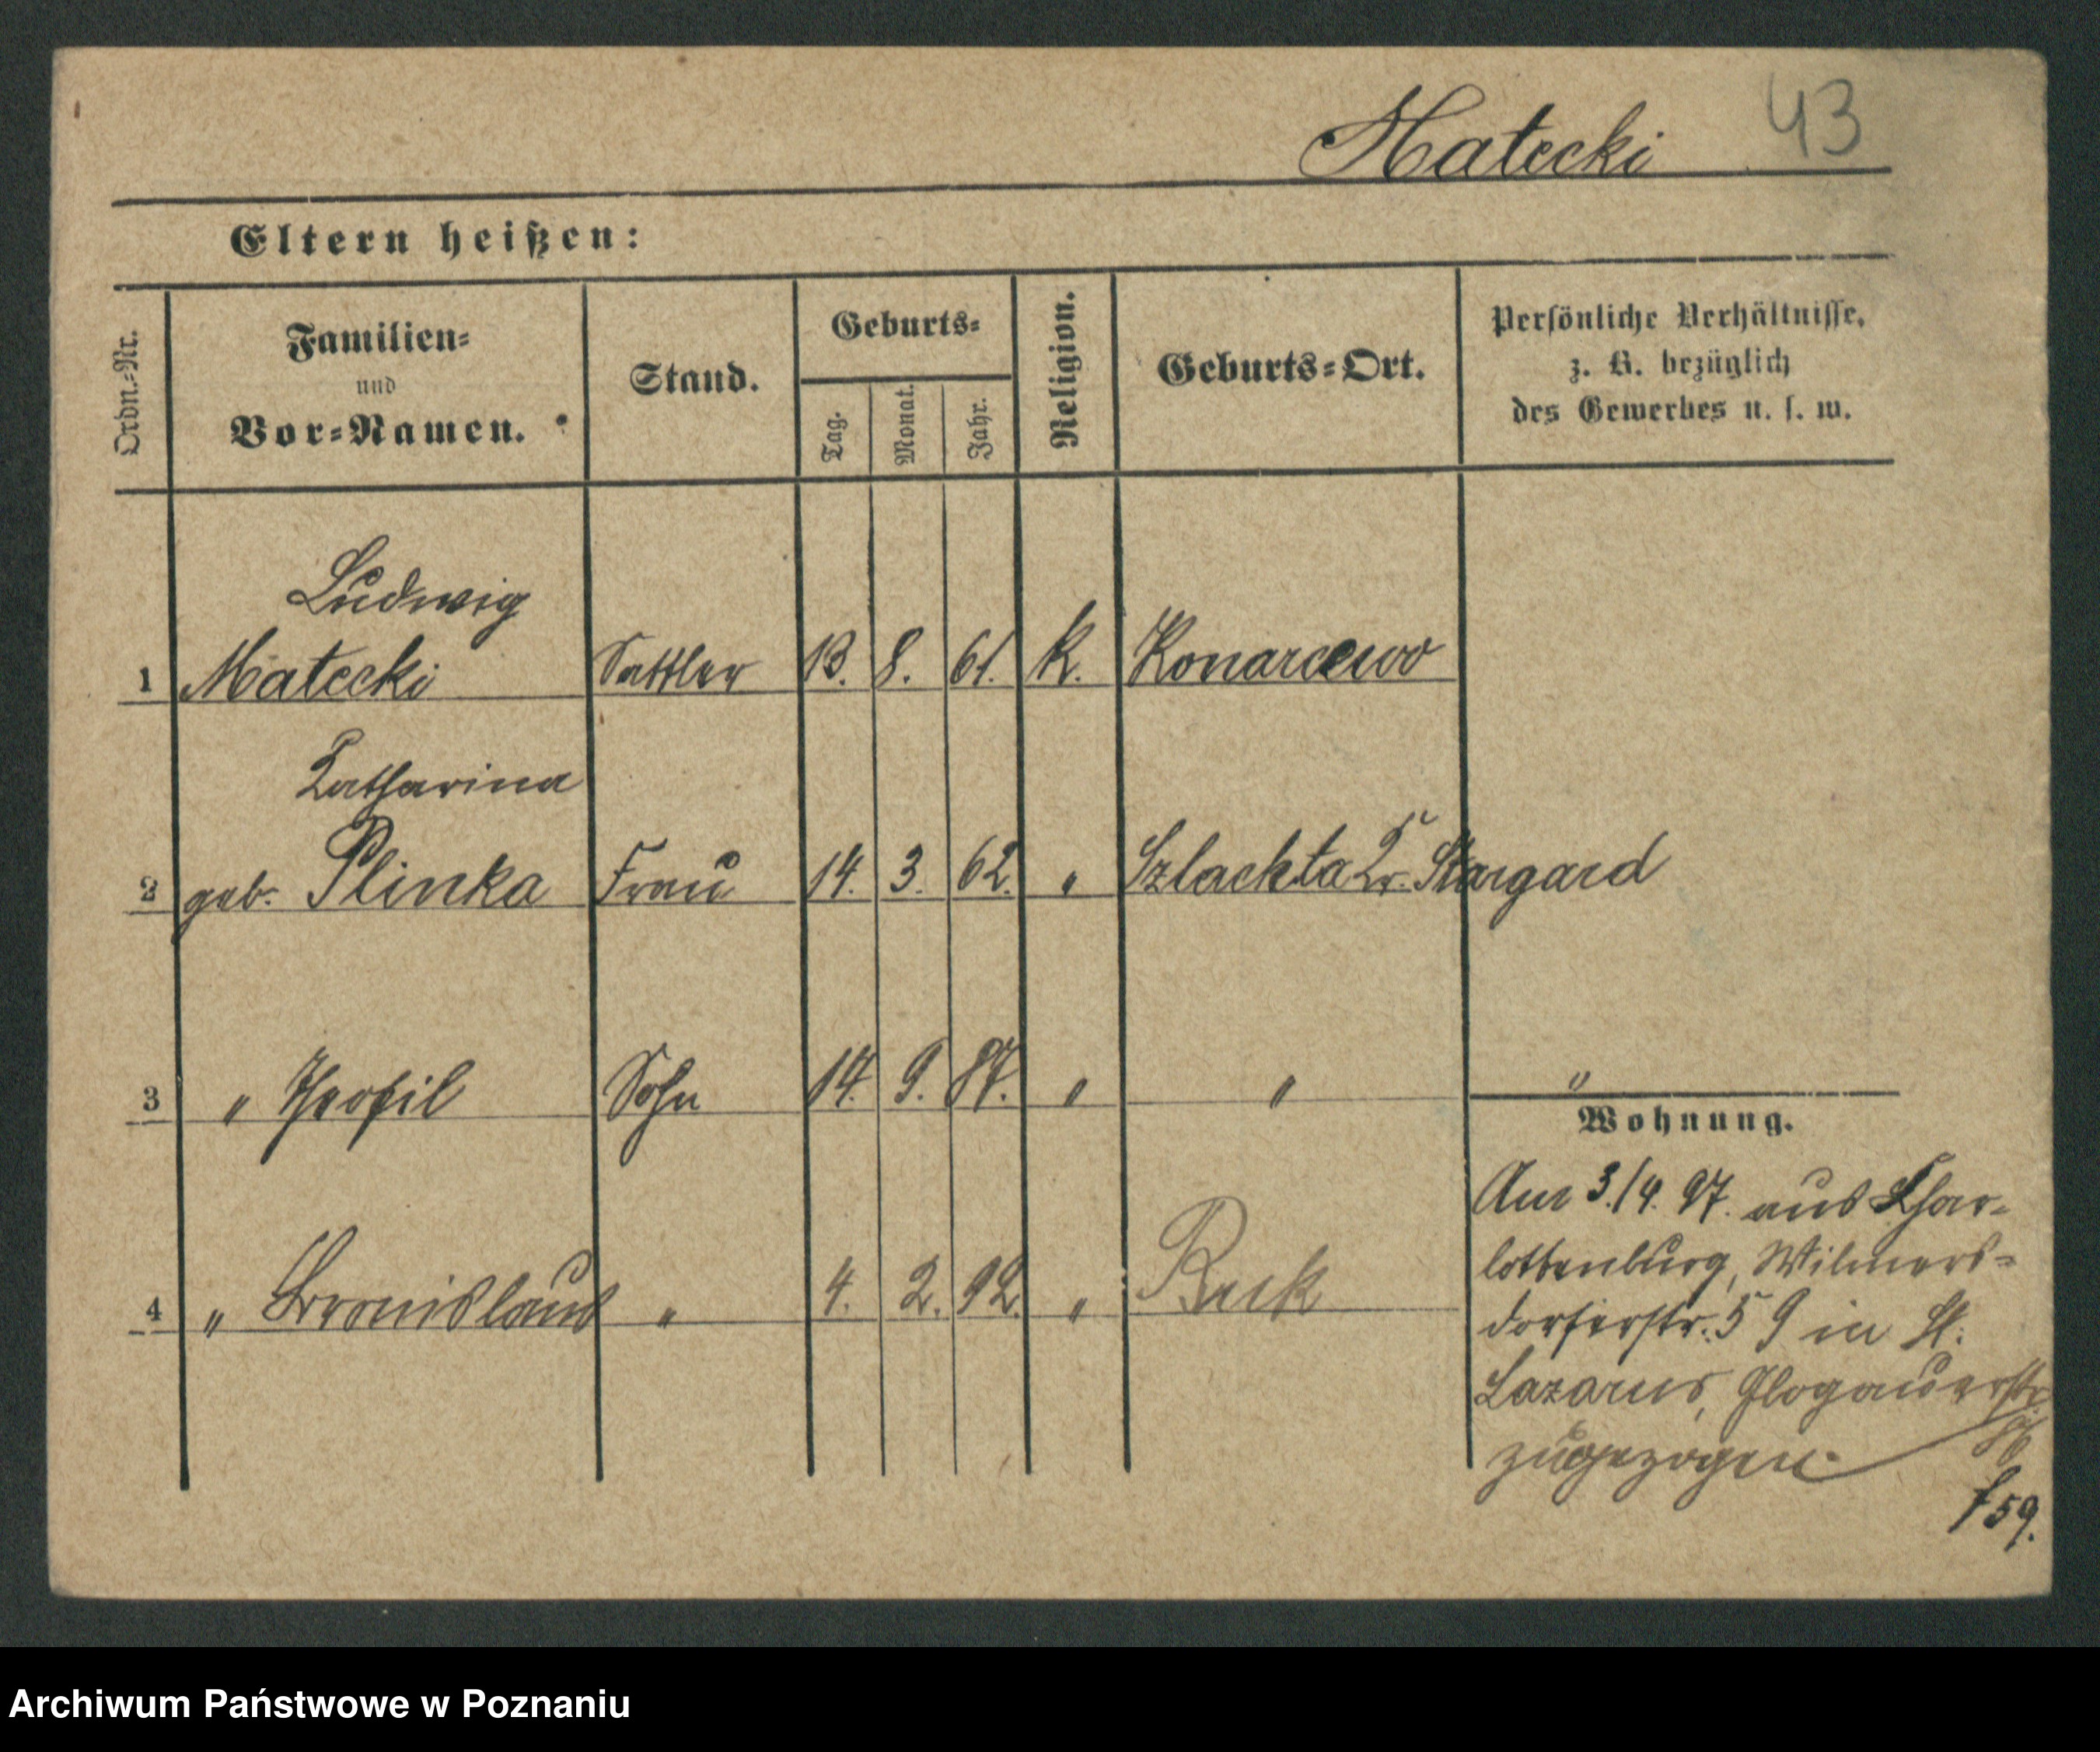 Matecki 43
Eltern heißen:
Ordn.=Nr. Familien= und Vor=Namen. Stand. Geburts= Tag. Monat. Jahr. Religion. Geburts=Ort. Persönliche Verhältnisse, z. B. bezüglich des Gewerbes u. s. w.
Ludwig
1 Matecki Sattler 13. 8. 61. K. Konarcewo
Katharina
2 geb. Plinka Frau 14. 3. 62. " Szlachta Kr. Stargard
3 " Theofil Sohn 14. 9. 87. " " "
Wohnung.
4 " Bronislaus " 4. 2. 92. " Buk
Am 3./4. 97. aus Char-
lottenburg, Wilmers-
dorferstr. 59 in St.
Lazarus, Glogauerstr.
zugezogen.
f 59.
Archiwum Państwowe w Poznaniu